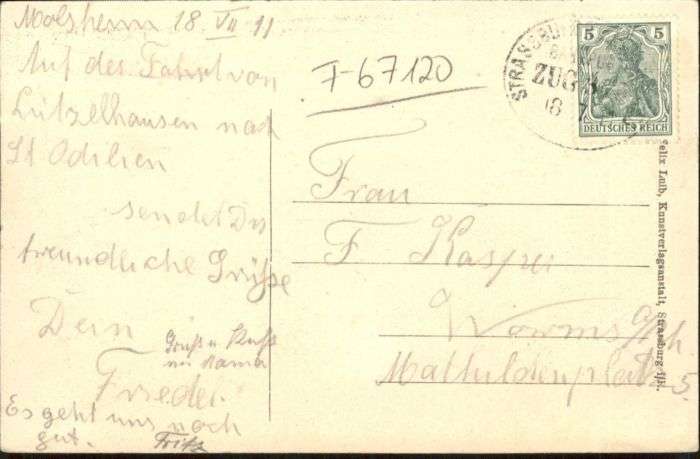 Molsheim 18 VII 11
Auf der Fahrt von
Lützelhausen nach
St Odilien
sendet Dir
freundliche Grüße
Dein
Frieder
Gruß u Kuß
an Mama
Es geht uns noch
gut. Fritz
F-67120
STRASSBURG
ZUG
18 7
5 5
DEUTSCHES REICH
Frau
F Kasper
Worms a/Rh.
Mathildenplatz
5.
Felix Luib, Kunstverlagsanstalt, Strassburg i/E.